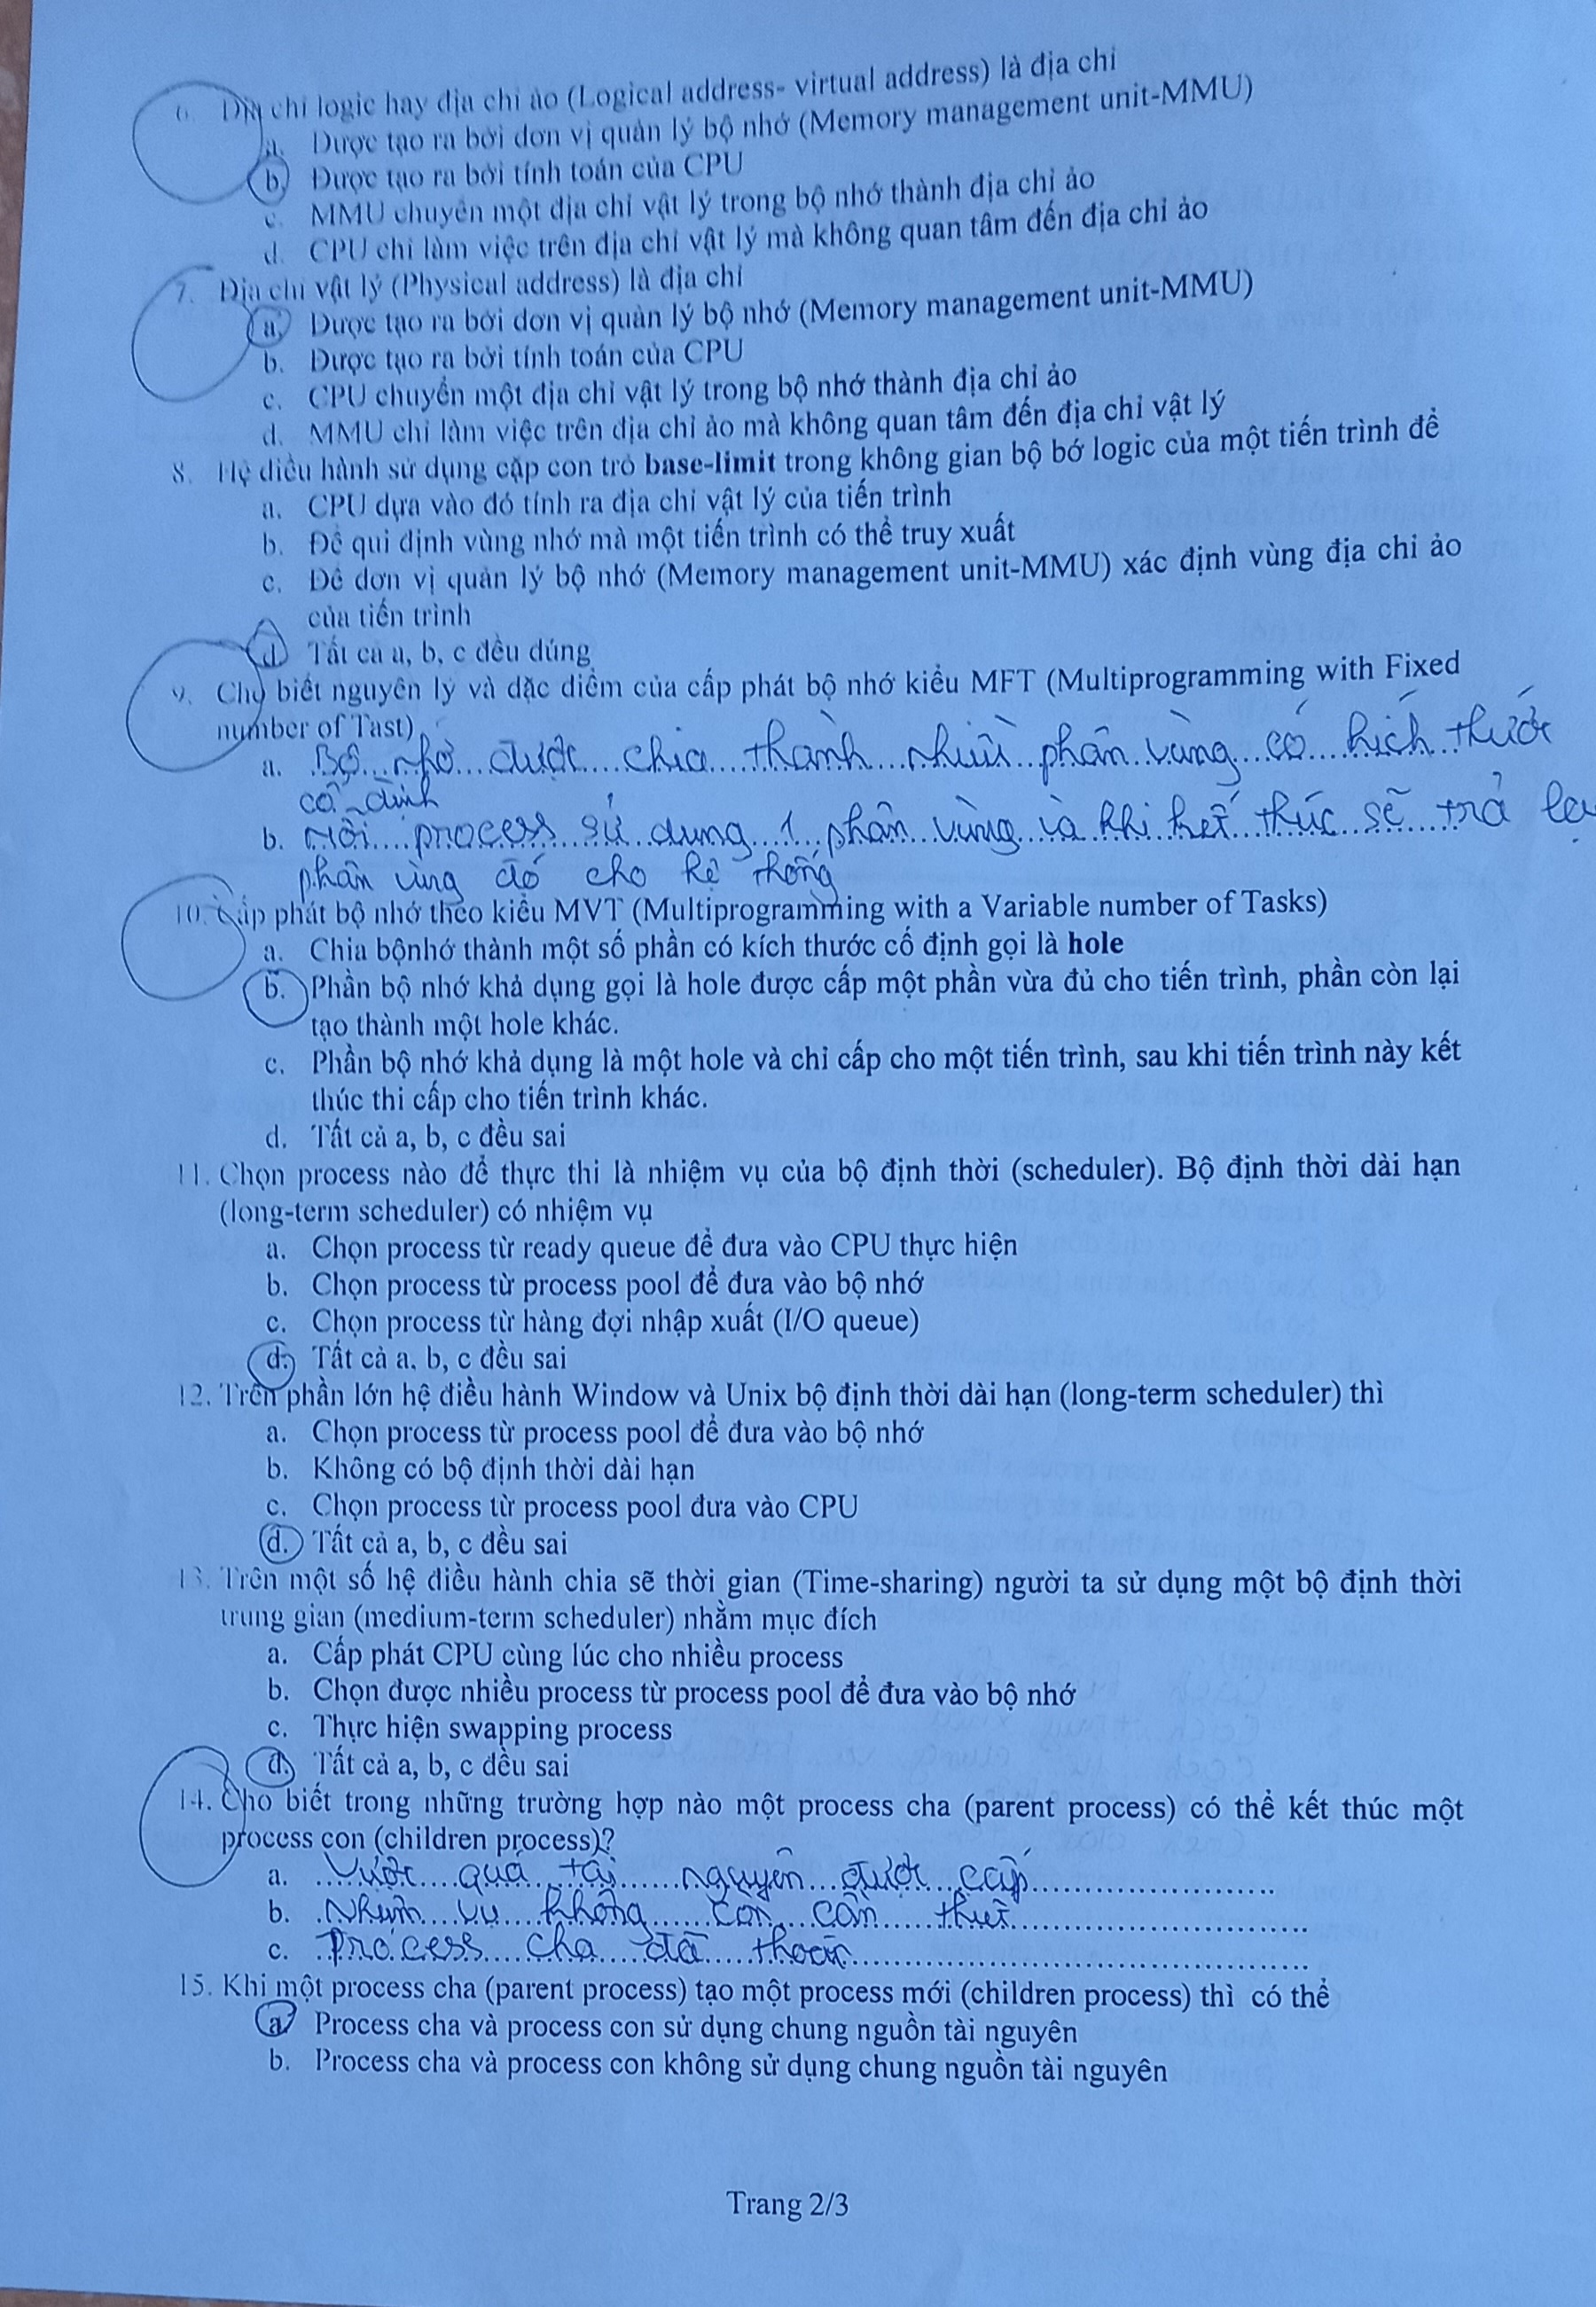 6. Địa chỉ logic hay địa chỉ ảo (Logical address- virtual address) là địa chỉ
a. Được tạo ra bởi đơn vị quản lý bộ nhớ (Memory management unit-MMU)
b. Được tạo ra bởi tính toán của CPU
c. MMU chuyển một địa chỉ vật lý trong bộ nhớ thành địa chỉ ảo
d. CPU chỉ làm việc trên địa chỉ vật lý mà không quan tâm đến địa chỉ ảo
7. Địa chỉ vật lý (Physical address) là địa chỉ
a. Được tạo ra bởi đơn vị quản lý bộ nhớ (Memory management unit-MMU)
b. Được tạo ra bởi tính toán của CPU
c. CPU chuyển một địa chỉ vật lý trong bộ nhớ thành địa chỉ ảo
d. MMU chỉ làm việc trên địa chỉ ảo mà không quan tâm đến địa chỉ vật lý
8. Hệ điều hành sử dụng cặp con trỏ base-limit trong không gian bộ bớ logic của một tiến trình để
a. CPU dựa vào đó tính ra địa chỉ vật lý của tiến trình
b. Để qui định vùng nhớ mà một tiến trình có thể truy xuất
c. Để đơn vị quản lý bộ nhớ (Memory management unit-MMU) xác định vùng địa chỉ ảo
của tiến trình
d. Tất cả a, b, c đều đúng
9. Cho biết nguyên lý và đặc điểm của cấp phát bộ nhớ kiểu MFT (Multiprogramming with Fixed
number of Tast)
a. Bộ nhớ được chia thành nhiều phân vùng có kích thước
cố định
b. Mỗi process sử dụng 1 phân vùng và khi kết thúc sẽ trả lại
phân vùng đó cho hệ thống
10. Cấp phát bộ nhớ theo kiểu MVT (Multiprogramming with a Variable number of Tasks)
a. Chia bộnhớ thành một số phần có kích thước cố định gọi là hole
b. Phần bộ nhớ khả dụng gọi là hole được cấp một phần vừa đủ cho tiến trình, phần còn lại
tạo thành một hole khác.
c. Phần bộ nhớ khả dụng là một hole và chỉ cấp cho một tiến trình, sau khi tiến trình này kết
thúc thi cấp cho tiến trình khác.
d. Tất cả a, b, c đều sai
11. Chọn process nào để thực thi là nhiệm vụ của bộ định thời (scheduler). Bộ định thời dài hạn
(long-term scheduler) có nhiệm vụ
a. Chọn process từ ready queue để đưa vào CPU thực hiện
b. Chọn process từ process pool để đưa vào bộ nhớ
c. Chọn process từ hàng đợi nhập xuất (I/O queue)
d. Tất cả a, b, c đều sai
12. Trên phần lớn hệ điều hành Window và Unix bộ định thời dài hạn (long-term scheduler) thì
a. Chọn process từ process pool để đưa vào bộ nhớ
b. Không có bộ định thời dài hạn
c. Chọn process từ process pool đưa vào CPU
d. Tất cả a, b, c đều sai
13. Trên một số hệ điều hành chia sẽ thời gian (Time-sharing) người ta sử dụng một bộ định thời
trung gian (medium-term scheduler) nhằm mục đích
a. Cấp phát CPU cùng lúc cho nhiều process
b. Chọn được nhiều process từ process pool để đưa vào bộ nhớ
c. Thực hiện swapping process
d. Tất cả a, b, c đều sai
14. Cho biết trong những trường hợp nào một process cha (parent process) có thể kết thúc một
process con (children process)?
a. Vượt quá tài nguyên được cấp
b. Nhiệm vụ không còn cần thiết
c. Process cha đã thoát
15. Khi một process cha (parent process) tạo một process mới (children process) thì có thể
a. Process cha và process con sử dụng chung nguồn tài nguyên
b. Process cha và process con không sử dụng chung nguồn tài nguyên
Trang 2/3